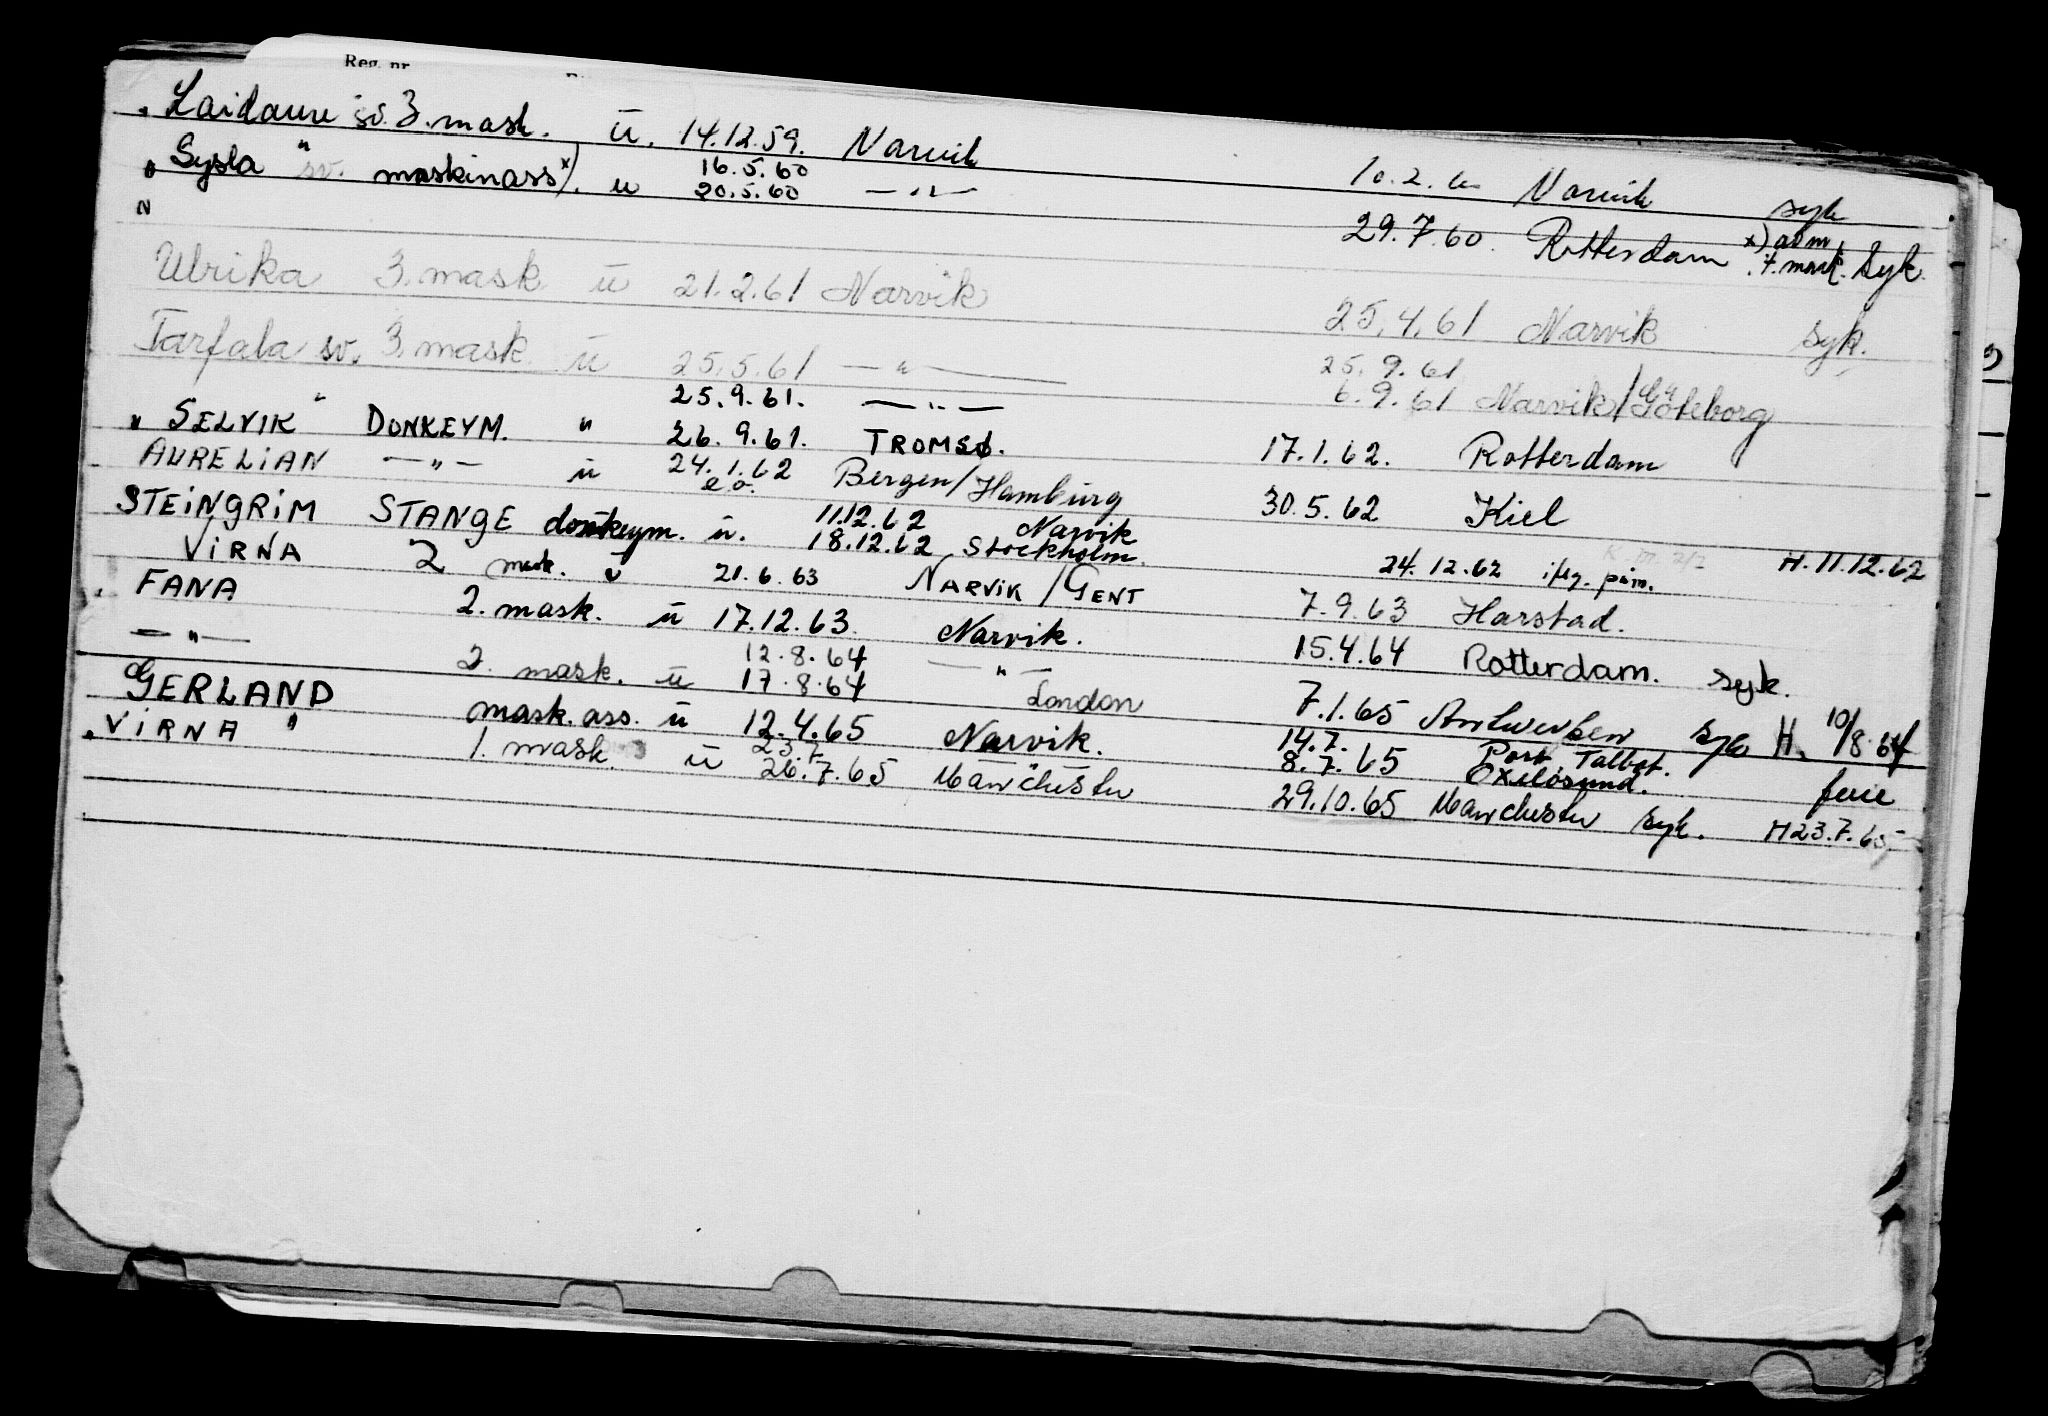 Reg. nr
" Laidaure sv. 3. mask. ü. 14.12.59. Narvik 10.2.60 Narvik syk
" Sysla " sv. maskinass x). u 16.5.60 20.5.60 — " — 29.7.60. Rotterdam x) adm syk.
"
Ulrika 3. mask ü 21.2.61 Narvik 25.4.61 Narvik syk.
Tarfala sv. 3. mask ü 25.5.61 — " — 25.9.61 6.9.61 Narvik/Göteborg
" SELVIK " DONKEYM. " 25.9.61. — " — 26.9.61. TROMSØ. 17.1.62. Rotterdam
AURELIAN — " — ü 24.1.62 e.o. Bergen/Hamburg 30.5.62 Kiel
STEINGRIM STANGE donkeym. ü. 11.12.62 Narvik 18.12.62 Stockholm. 24.12.62 iflg. påm. H. 11.12.62
VIRNA 2 mask. ü 21.6.63 NARVIK/GENT 7.9.63 Harstad.
" FANA 2. mask. ü 17.12.63. Narvik. 15.4.64 Rotterdam. syk.
— " — 2. mask. ü 12.8.64 — " — 17.8.64 London 7.1.65 Antwerpen syk H. 10/8.64
GERLAND mask.ass. ü 12.4.65 Narvik. 14.7. Port Talbot. 8.7.65 Oxelösund. ferie
" VIRNA " 1. mask. ü 23.7 26.7.65 Manchester 29.10.65 Manchester syk. H 23.7.65